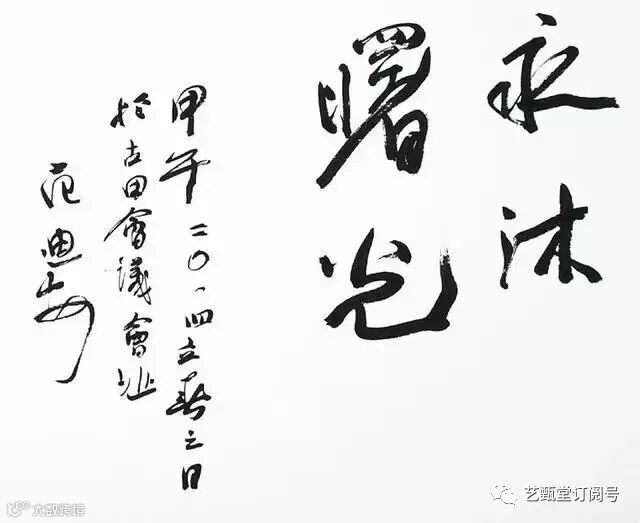 永沐
曙光
甲午二〇一四立春之日
於古田會議會址
范迪安
艺甄堂订阅号
大数跨境